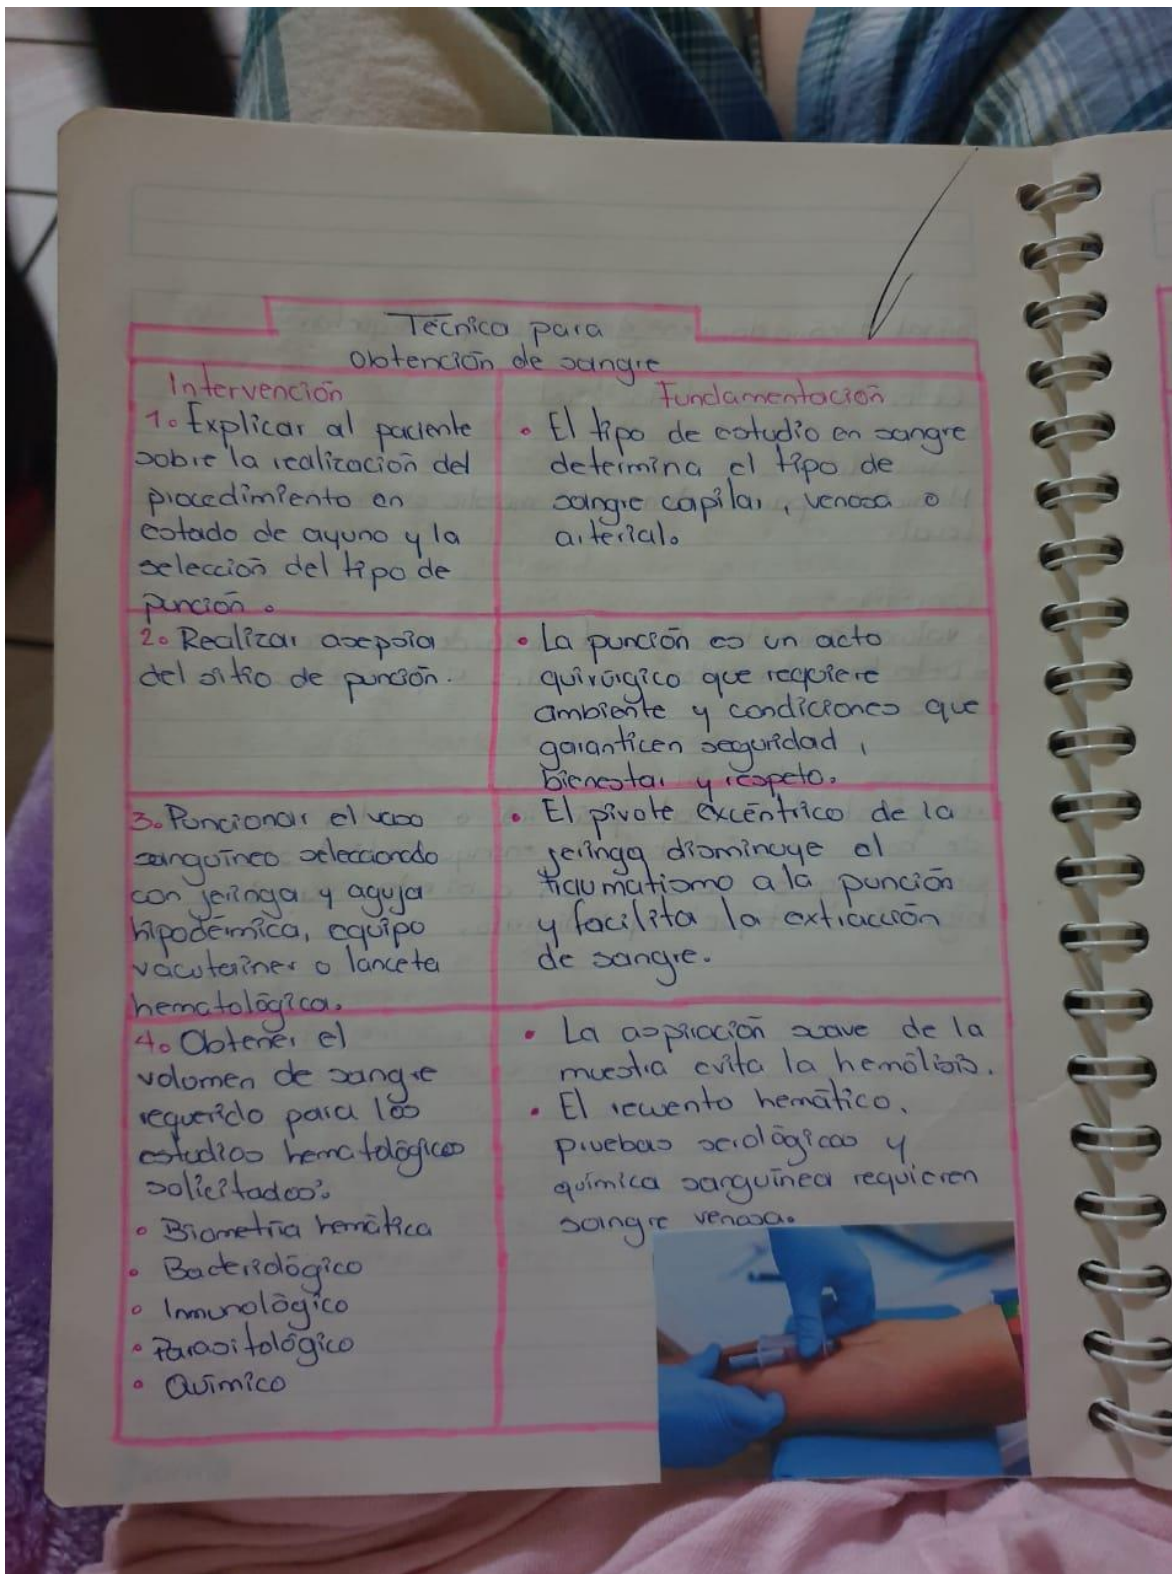 Técnica para
obtención de sangre
Intervención
1. Explicar al paciente
sobre la realización del
procedimiento en
estado de ayuno y la
selección del tipo de
punción.
Fundamentación
• El tipo de estudio en sangre
determina el tipo de
sangre capilar, venosa o
arterial.
2. Realizar asepsia
del sitio de punción.
• La punción es un acto
quirúrgico que requiere
ambiente y condiciones que
garanticen seguridad,
bienestar y respeto.
3. Puncionar el vaso
sanguíneo seleccionado
con jeringa y aguja
hipodémica, equipo
vacutainer o lanceta
hematológica.
• El pivote excéntrico de la
jeringa disminuye el
traumatismo a la punción
y facilita la extracción
de sangre.
4. Obtener el
volumen de sangre
requerido para los
estudios hematológicos
solicitados:
• Biometría hemática
• Bacteriológico
• Inmunológico
• Parasitológico
• Químico
• La aspiración suave de la
muestra evita la hemólisis.
• El recuento hemático,
pruebas serológicas y
química sanguínea requieren
sangre venosa.